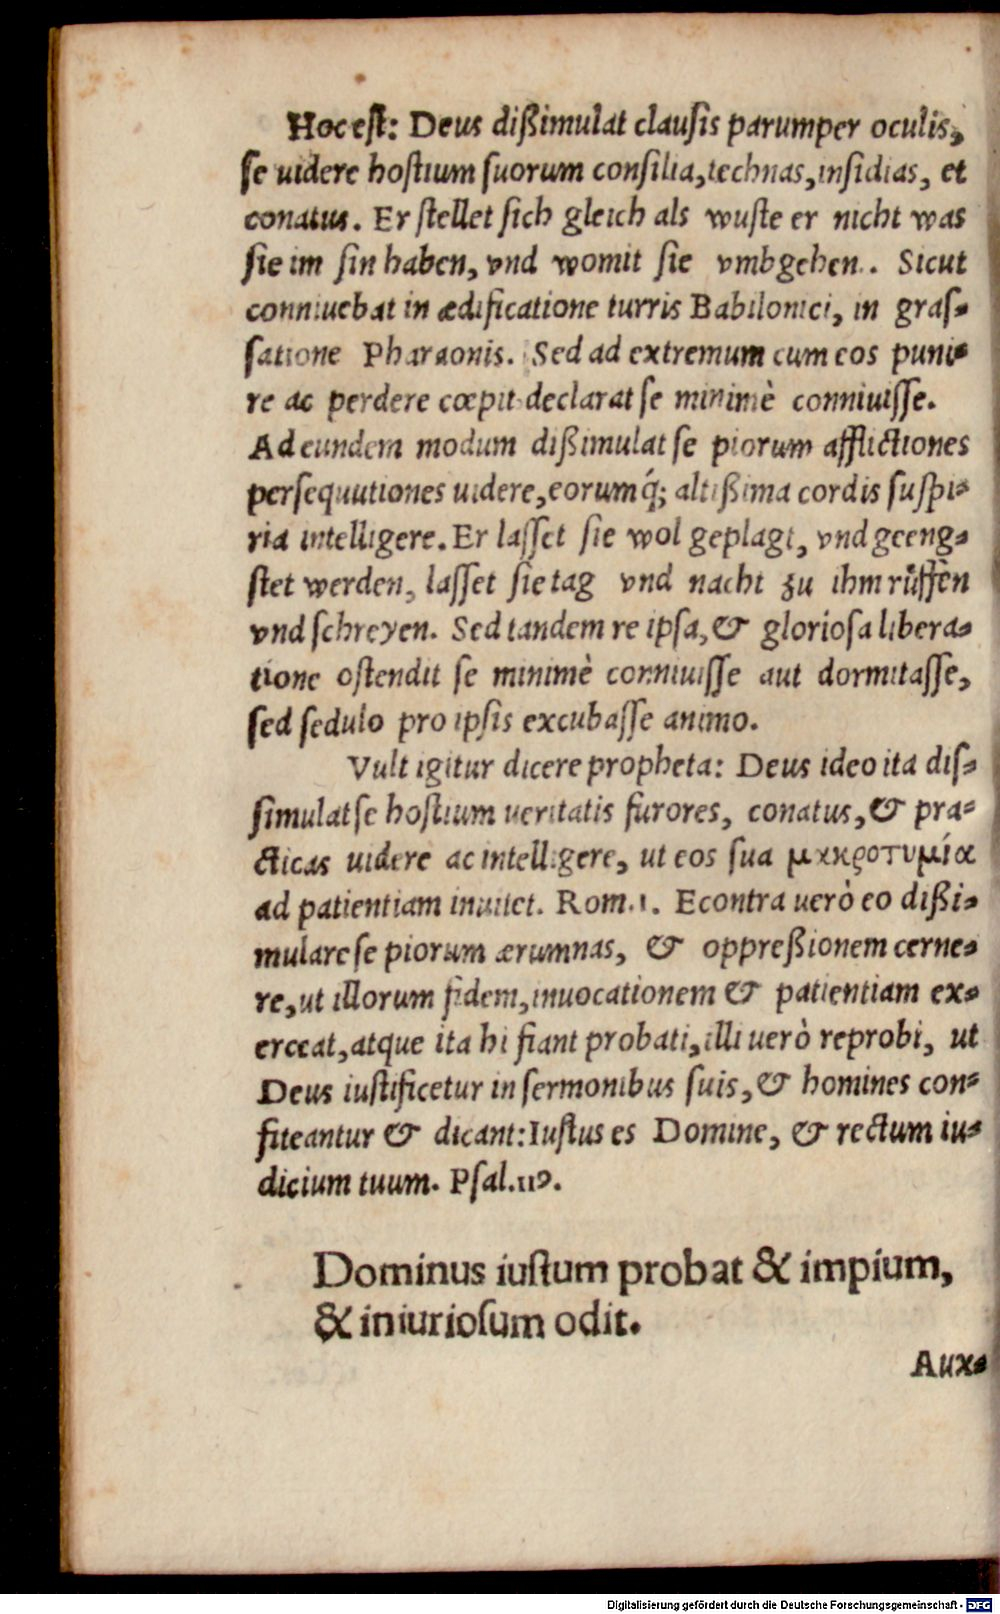 Hoc eſt: Deus dißimulat clauſis parumper oculis,
ſe uidere hoſtium ſuorum conſilia, technas, inſidias, et
conatus. Er ſtellet ſich gleich als wuſte er nicht was
ſie im ſin haben, vnd womit ſie vmbgehen. Sicut
conniuebat in ædificatione turris Babilonici, in graſ-
ſatione Pharaonis. Sed ad extremum cum eos puni-
re ac perdere cœpit declarat ſe minimè conniuiſſe.
Ad eundem modum dißimulat ſe piorum afflictiones
perſequutiones uidere, eorumq́; altißima cordis ſuſpi-
ria intelligere. Er laſſet ſie wol geplagt, vnd geeng-
ſtet werden, laſſet ſie tag vnd nacht zu ihm růffen
vnd ſchreyen. Sed tandem re ipſa, & glorioſa libera-
tione oſtendit ſe minimè conniuiſſe aut dormitaſſe,
ſed ſedulo pro ipſis excubaſſe animo.
Vult igitur dicere propheta: Deus ideo ita diſ-
ſimulat ſe hoſtium ueritatis furores, conatus, & pra-
cticas uidere ac intelligere, ut eos ſua μακροτυμία
ad patientiam inuitet. Rom. 1. Econtra uerò eo dißi-
mulare ſe piorum ærumnas, & oppreßionem cerne-
re, ut illorum fidem, inuocationem & patientiam ex-
erceat, atque ita hi fiant probati, illi uerò reprobi, ut
Deus iuſtificetur in ſermonibus ſuis, & homines con-
fiteantur & dicant: Iuſtus es Domine, & rectum iu-
dicium tuum. Pſal. 119.
Dominus iuſtum probat & impium,
& iniurioſum odit.
Aux-
Digitalisierung gefördert durch die Deutsche Forschungsgemeinschaft - DFG